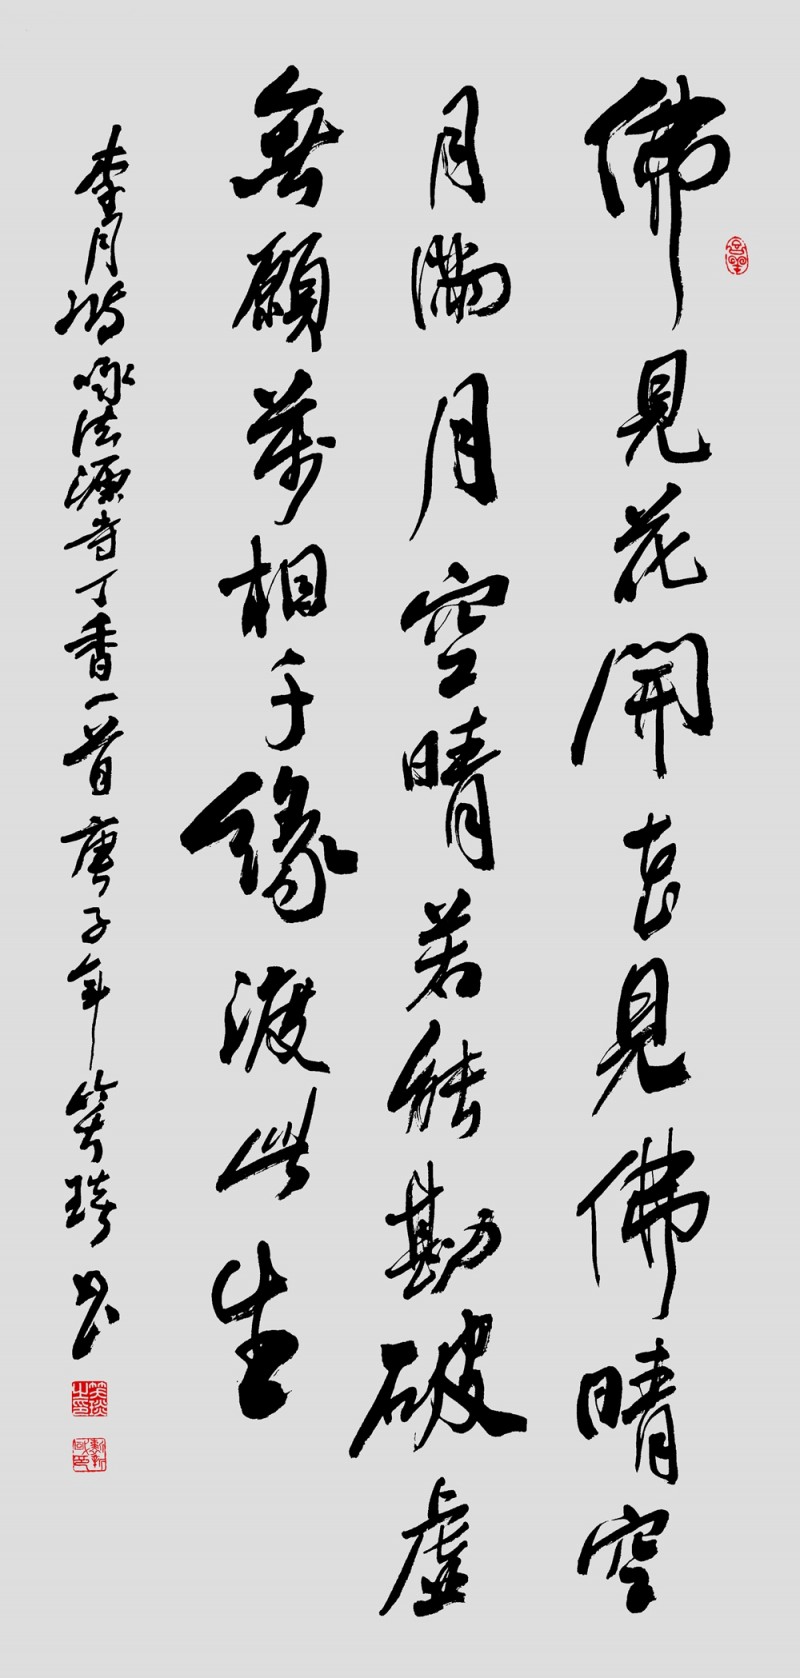 佛見花開花見佛晴空
月滿月空晴若能勘破虛
無願萬相千緣渡此生
李月詠法源寺丁香一首庚子年笑書